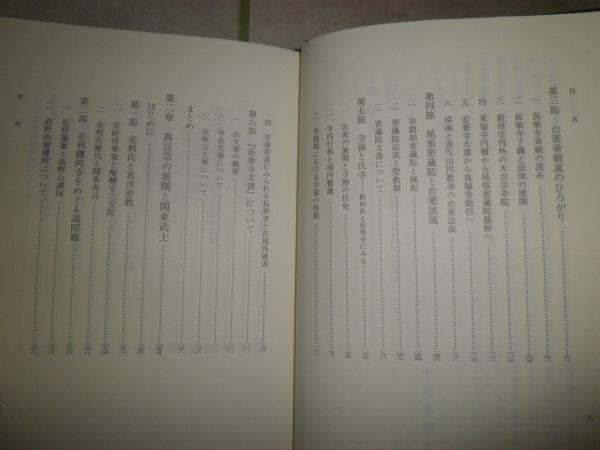 目次
第三節 台密栄朝流のひろがり
一 長楽寺栄朝の法系
二 長楽寺了義と法流の展開
三 新田庄内外の天台宗寺院
四 東福寺円爾から尾張密蔵院慈妙へ
五 安養寺大慧から真福寺能信へ
六 琛海と書写山円教寺の台密法流
第四節 尾張密蔵院と台密法流
一 草創期密蔵院と縁起
二 密蔵院法流と聖教類
三 密蔵院文書について
第五節 寺領と氏寺―新田氏と長楽寺にみる
一 法流の展開と寺僧の任免
二 寺内行事と境内警護
三 草創期における寺領の性格
八
四 寺領畠進にみられる長楽寺と在地外護者
第六節 『長楽寺文書』について
一 古文書の概要
二 中世文書について
三 近世古文書について
まとめ
第二章 真言宗の展開と関東武士
はじめに
第一節 足利氏と真言密教
一 室町将軍家と醍醐寺三宝院
二 足利氏歴代と関東真言
第二節 足利鑁阿寺をめぐる諸問題
一 足利義兼と高野山鑁阿
二 高野山僧鑁阿について
目次